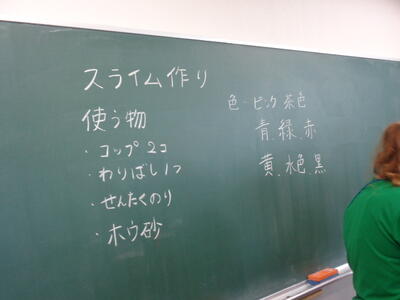 スライム作り
使う物
・コップ2コ
・わりばし1つ
・せんたくのり
・ホウ砂
色-ピンク茶色
青.緑.赤
黄.水色.黒